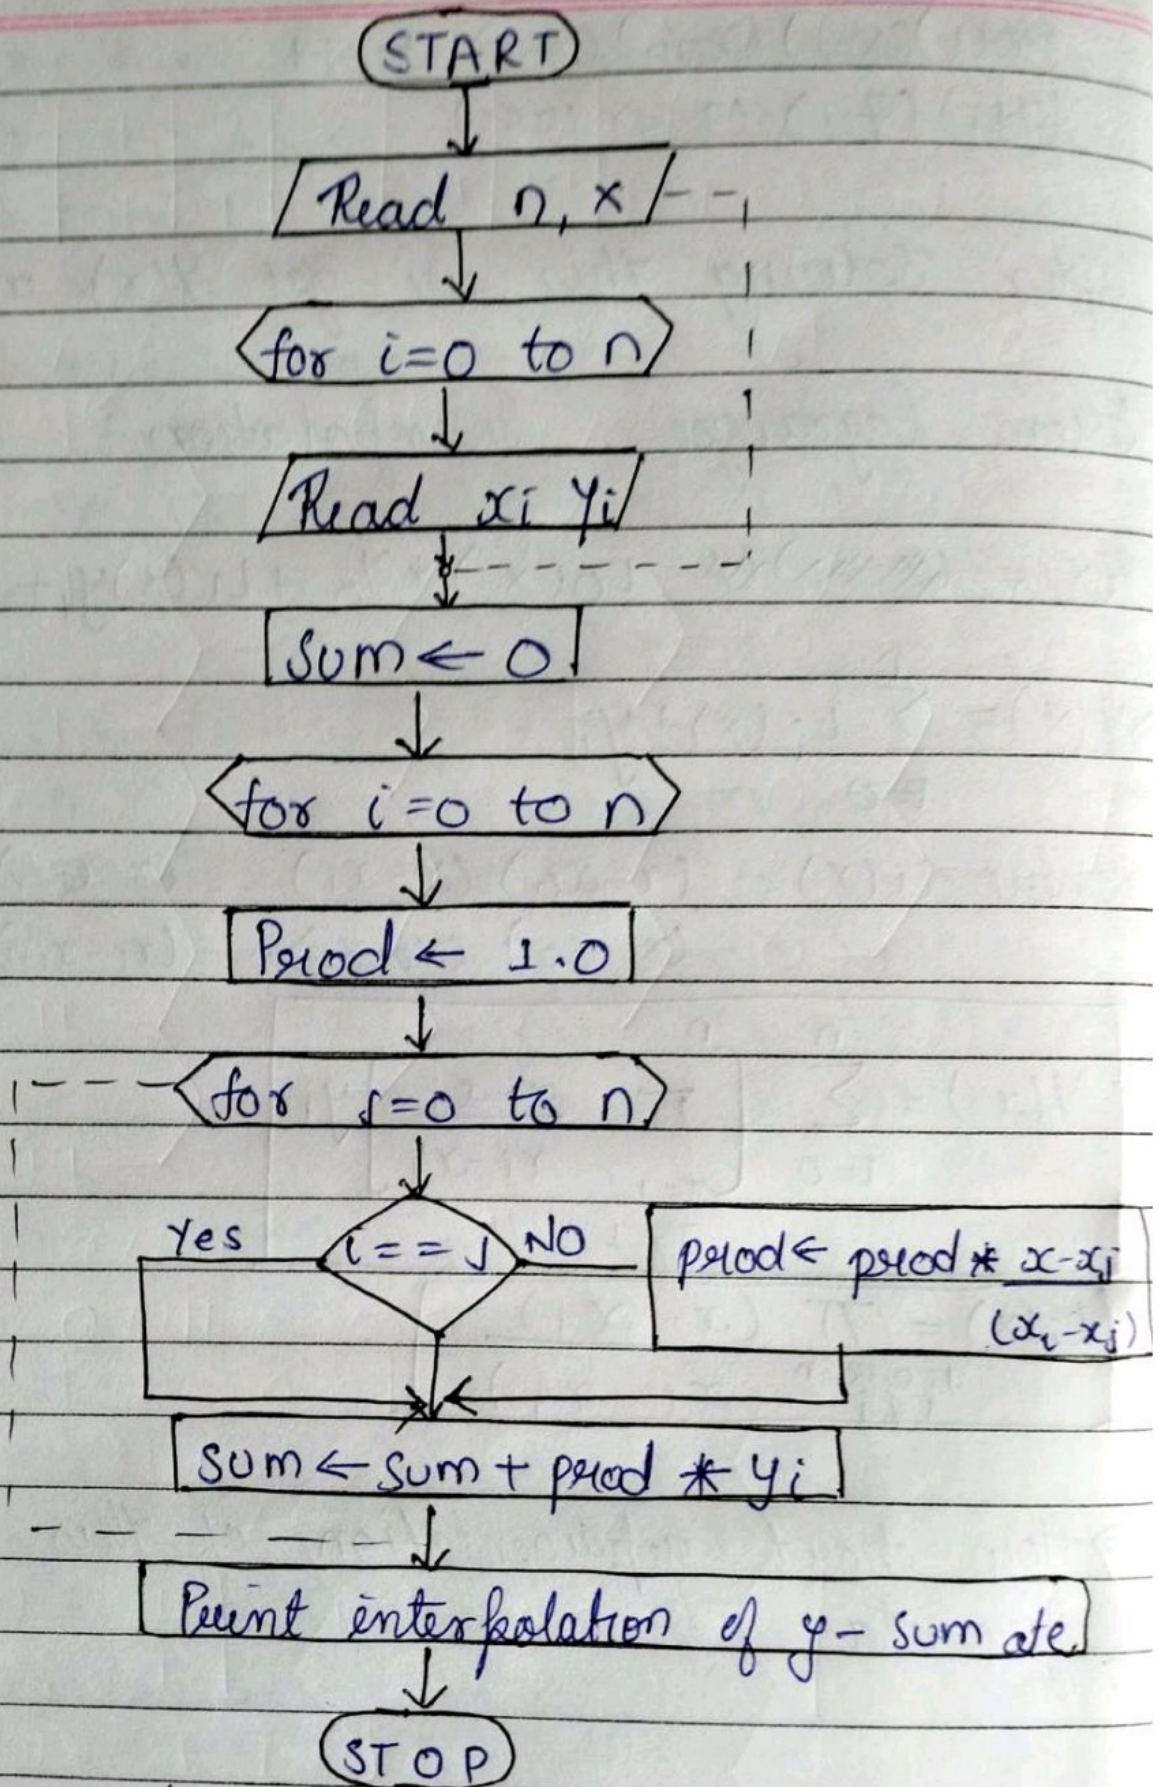 START
Read n, x
for i=0 to n
Read xi yi
Sum ← 0
for i=0 to n
Prod ← 1.0
for j=0 to n
Yes i==j NO
prod ← prod * x-xj
(xi-xj)
sum ← sum + prod * yi
Print interpolation of y - sum ate
STOP